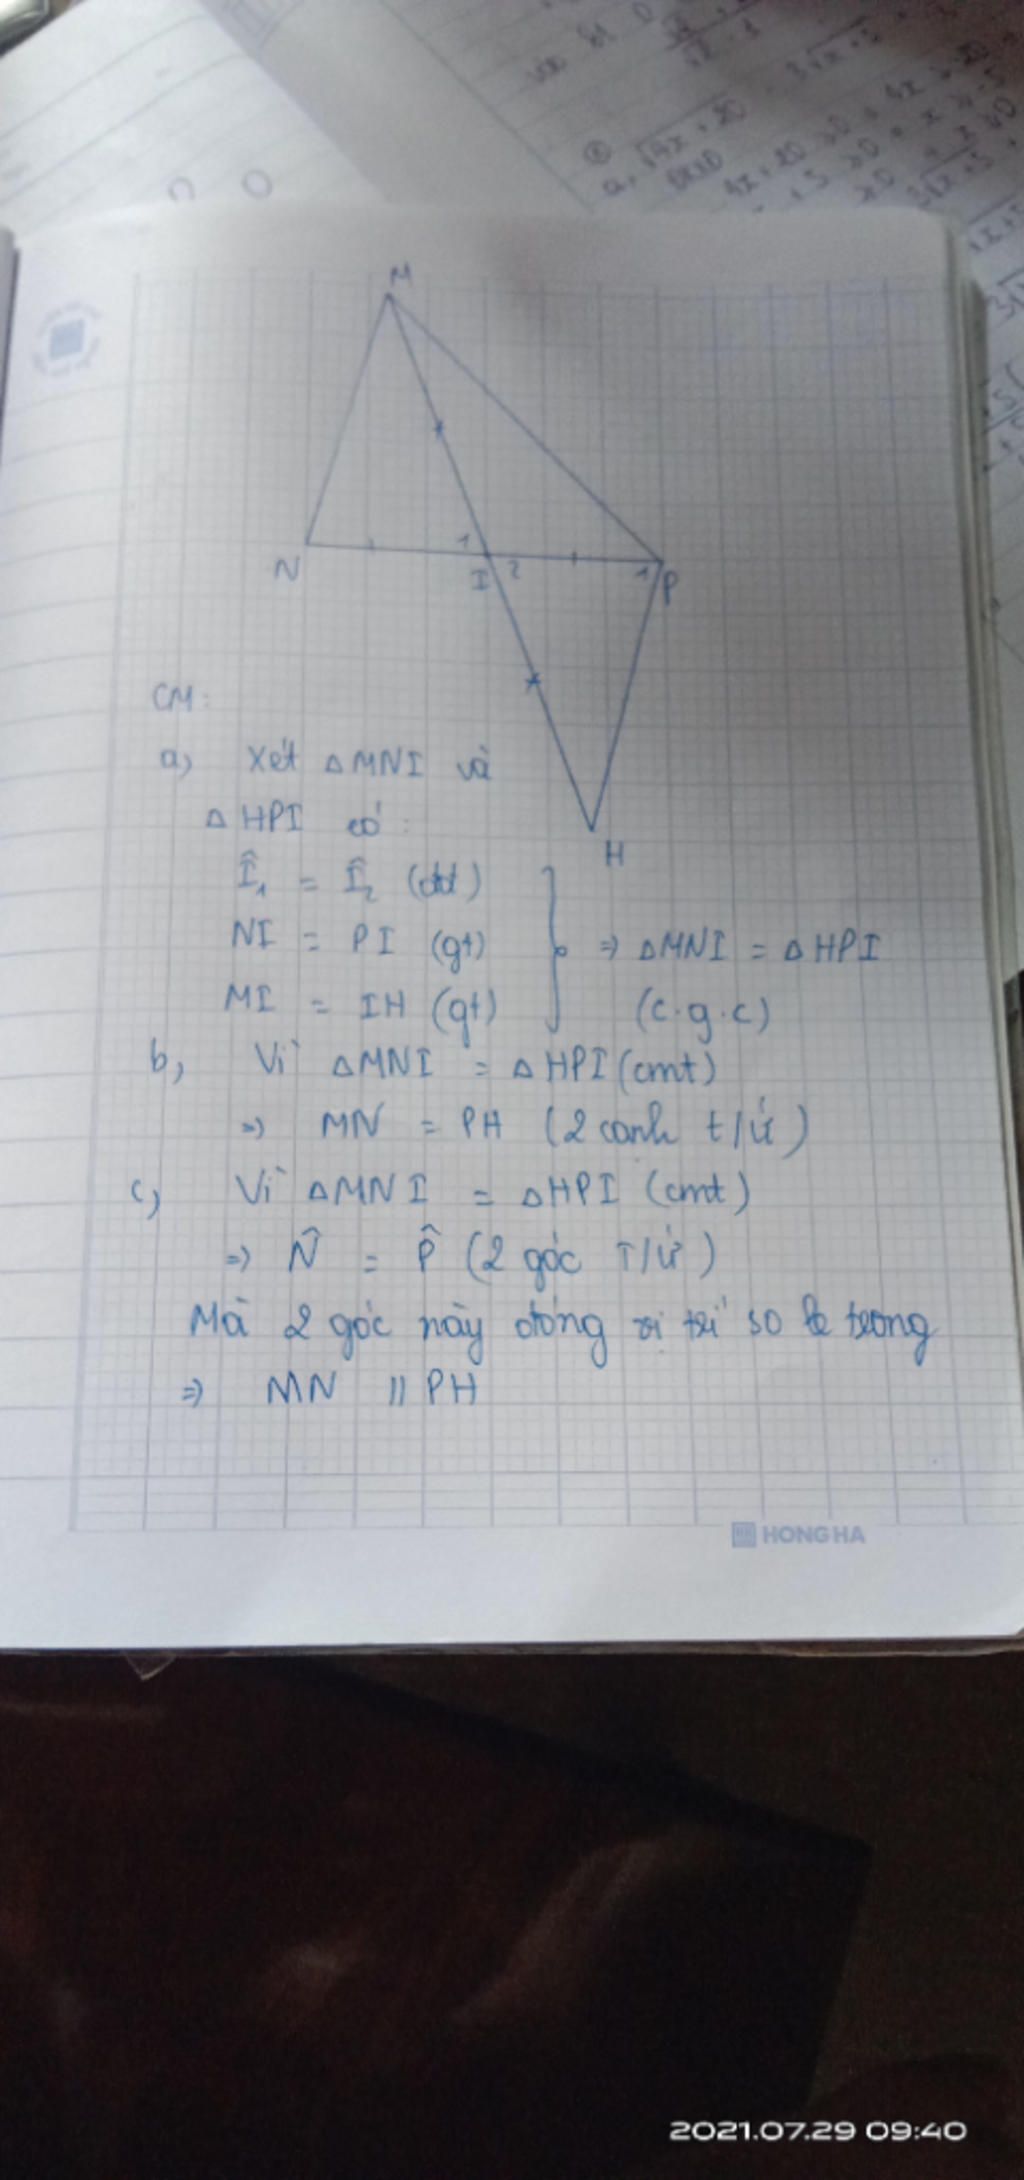 M
N
1
I
2
1
P
H
CM:
a, Xét △MNI và
△HPI có:
Î₁ = Î₂ (đđ)
NI = PI (gt)
MI = IH (gt)
⇒ △MNI = △HPI
(c.g.c)
b, Vì △MNI = △HPI (cmt)
⇒ MN = PH (2 cạnh t/ứ)
c, Vì △MNI = △HPI (cmt)
⇒ N̂ = P̂ (2 góc T/ứ)
Mà 2 góc này đóng vị trí so le trong
⇒ MN // PH
HONG HA
2021.07.29 09:40